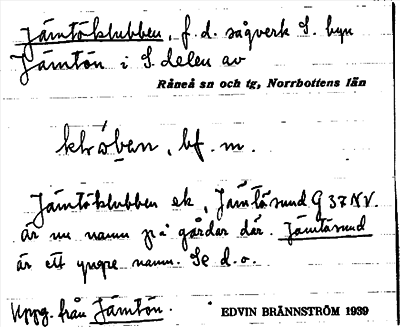 Jämtöklubben, f. d. sågverk S. byn
Jämtön i S. delen av
Råneå sn och tg, Norrbottens län
bf. m.
Jämtöklubben ek, Jämtösund G 37 NV.
är nu namn på gårdar där. Jämtösund
är ett yngre namn. Se d. o.
Uppg. från Jämtön. EDVIN BRÄNNSTRÖM 1939